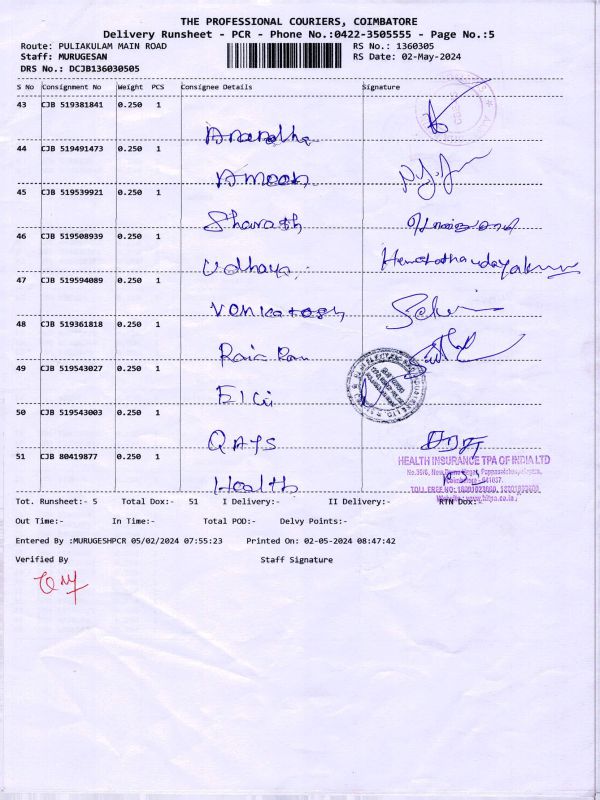 THE PROFESSIONAL COURIERS, COIMBATORE
Delivery Runsheet - PCR - Phone No.:0422-3505555 - Page No.:5
Route: PULIAKULAM MAIN ROAD RS No.: 1360305
Staff: MURUGESAN RS Date: 02-May-2024
DRS No.: DCJB136030505
S No Consignment No Weight PCS Consignee Details Signature
43 CJB 519381841 0.250 1
44 CJB 519491473 0.250 1
Amoon
45 CJB 519539921 0.250 1
Sharath
46 CJB 519508939 0.250 1
Udhaya
47 CJB 519594089 0.250 1
Venkatesh
48 CJB 519361818 0.250 1
49 CJB 519543027 0.250 1
Elci
50 CJB 519543003 0.250 1
QAYS
51 CJB 80419877 0.250 1
HEALTH INSURANCE TPA OF INDIA LTD
Health
Tot. Runsheet:- 5 Total Dox:- 51 I Delivery:- II Delivery:- RTN Dox:-
Out Time:- In Time:- Total POD:- Delvy Points:-
Entered By :MURUGESHPCR 05/02/2024 07:55:23 Printed On: 02-05-2024 08:47:42
Verified By Staff Signature